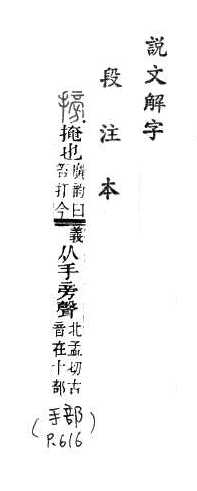 說文解字
段注本
搒掩也廣韵曰笞打今義从手旁聲北孟切古音在十部
(手部)
P.616